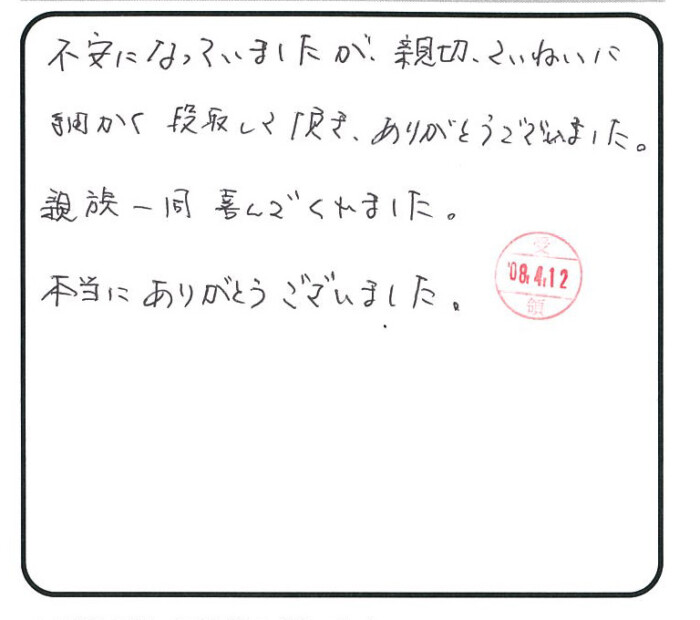 不安になっていましたが、親切、ていねいに
細かく段取して頂き、ありがとうございました。
親族一同喜んでくれました。
本当にありがとうございました。
受
'08.4.12
領